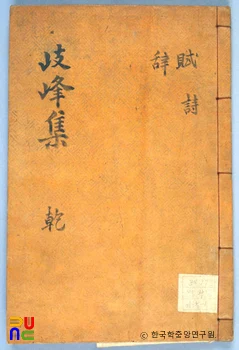 岐峰集 乾
賦 詩
辞
ⓒ 한국학중앙연구원